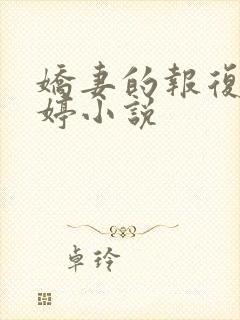 嬌妻的報復
婷小說
卓玲